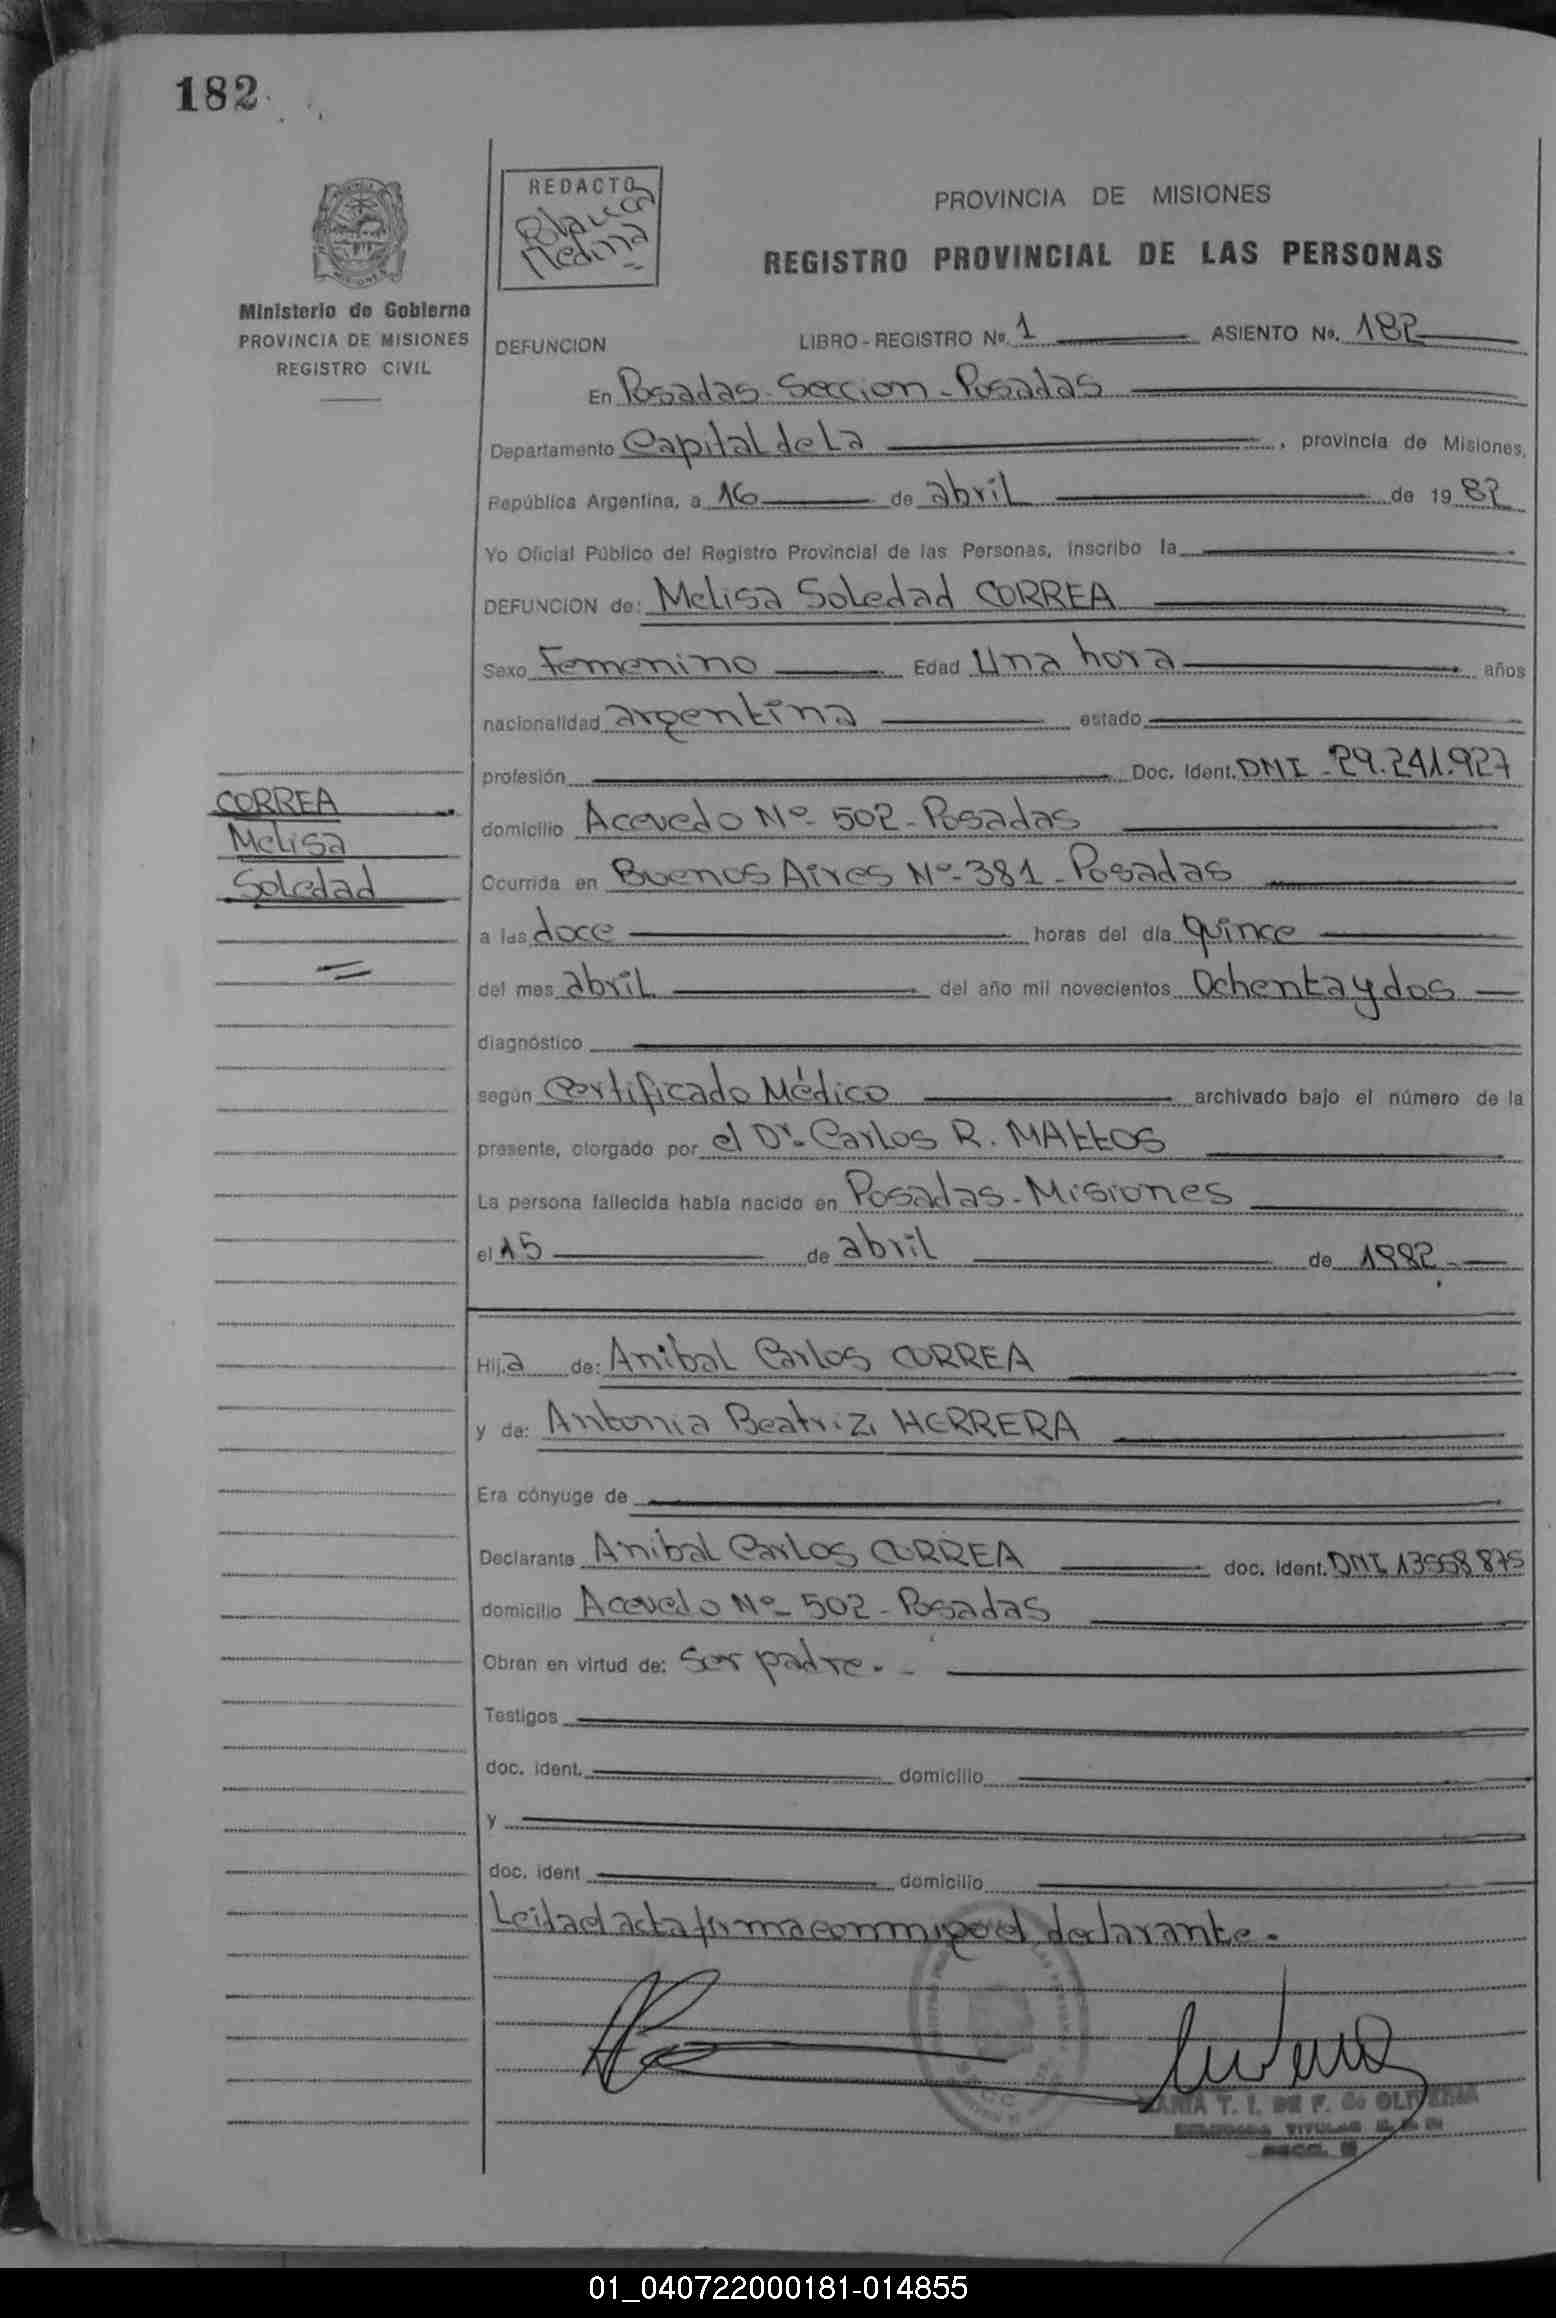 182
REDACTO
Blanca
Medina
PROVINCIA DE MISIONES
REGISTRO PROVINCIAL DE LAS PERSONAS
Ministerio de Gobierno
PROVINCIA DE MISIONES
REGISTRO CIVIL
DEFUNCION LIBRO - REGISTRO Nº. 1 ASIENTO No. 182
En Posadas - Seccion - Posadas
Departamento Capital de La , provincia de Misiones,
República Argentina, a 16 de abril de 19 82
Yo Oficial Público del Registro Provincial de las Personas, inscribo la
DEFUNCION de: Melisa Soledad CORREA
Sexo Femenino Edad Una hora años
nacionalidad argentina estado
profesión Doc. Ident. DNI - 29.241.927
CORREA
Melisa
Soledad
domicilio Acevedo Nº - 502 - Posadas
Ocurrida en Buenos Aires Nº - 381 - Posadas
a las doce horas del día quince
del mes abril del año mil novecientos Ochenta y dos
diagnóstico
según Certificado Médico archivado bajo el número de la
presente, otorgado por el Dr. Carlos R. MATTOS
La persona fallecida había nacido en Posadas - Misiones
el 15 de abril de 1982.-
Hij a de: Anibal Carlos CORREA
y de: Antonia Beatriz HERRERA
Era cónyuge de
Declarante Anibal Carlos CORREA doc. Ident. DNI 13558875
domicilio Acevedo Nº - 502 - Posadas
Obran en virtud de: Ser padre. -
Testigos
doc. ident. domicilio
y
doc. ident domicilio
Leida el acta firma conmigo el declarante.
MARIA T. I. DE F. de OLIVEIRA
TITULAR
SECC.
01_040722000181-014855